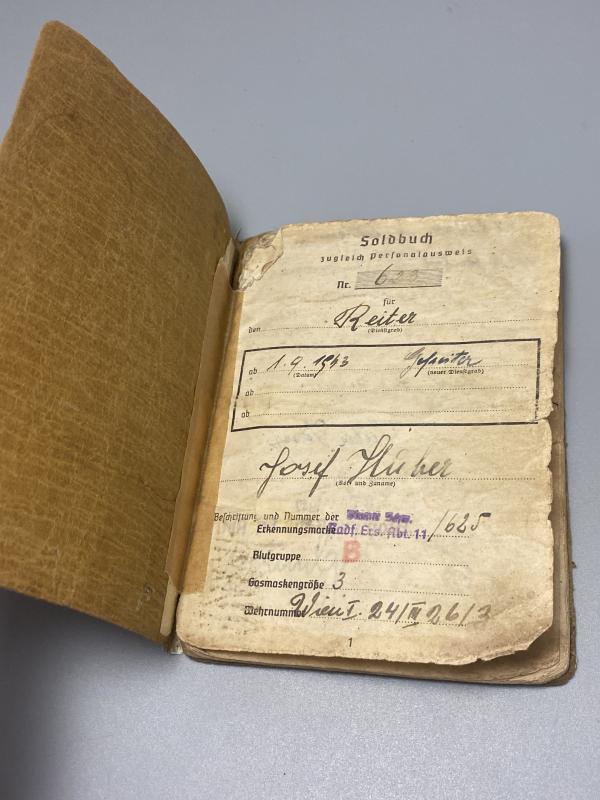 Soldbuch
zugleich Personalausweis
Nr. 625
für
den Reiter
(Dienstgrad)
ab 1.9.1943 Gefreiter
(Datum) (neuer Dienstgrad)
ab
ab
Josef Huber
(Vor- und Zuname)
Beschriftung und Nummer der
Erkennungsmarke Radf. Ers. Abt. 11/625
Blutgruppe B
Gasmaskengröße 3
Wehrnummer Wien I 24/III 26/3
1